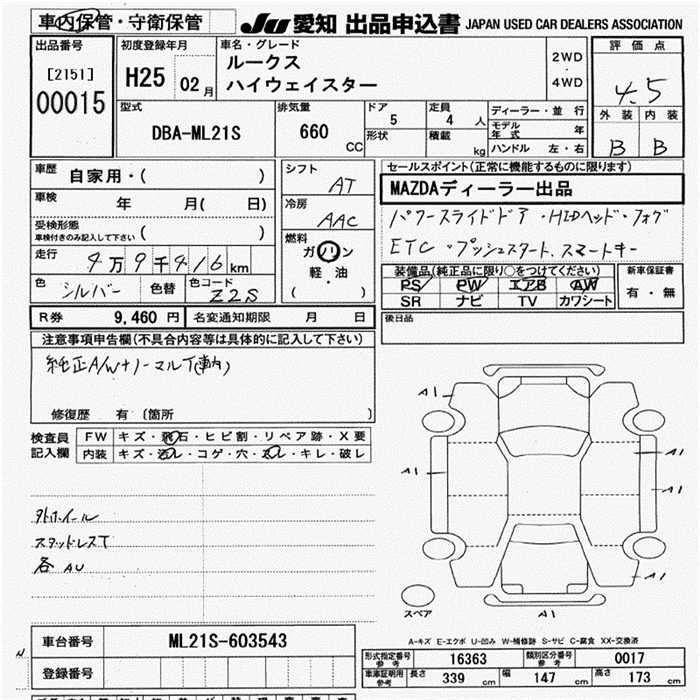 車内保管・守衛保管 JU 愛知 出品申込書 JAPAN USED CAR DEALERS ASSOCIATION
出品番号 初度登録年月 車名・グレード 評価点
[2151] H25 02月 ルークス 2WD
00015 ハイウェイスター ・ 4WD 4.5
型式 排気量 ドア 定員 ディーラー・並行 外装 内装
DBA-ML21S 660 CC 5 4人 モデル年式 年 B B
形状 積載 kg ハンドル 左・右
車歴 自家用・( ) シフト AT セールスポイント(正常に機能するものに限ります)
車検 年 月( 日) 冷房 AAC MAZDAディーラー出品
受検形態 パワースライドドア・HIDヘッド・フォグ
車検付きのみ記入して下さい ( ) 燃料 ETC・プッシュスタート、スマートキー
走行 4万9千416km ガソリン
軽・油
( )
色 シルバー 色替 色コード Z2S
装備品(純正品に限り○をつけてください) 新車保証書
PS PW エアB AW 有・無
SR ナビ TV カワシート
R券 9,460円 名変通知期限 月 日 後日品
注意事項申告欄(不具合内容等は具体的に記入して下さい)
純正A/W+ノーマルT(車内)
修復歴 有〔箇所 〕
検査員 FW キズ・飛石・ヒビ割・リペア跡・X要
記入欄 内装 キズ・汚レ・コゲ・穴・スレ・キレ・破レ
A1
A1 A1
A1
外ホイール
スタッドレスT
各AU
A1
スペア A1
A-キズ E-エクボ U-凹み W-補修跡 S-サビ C-腐食 XX-交換済
車台番号 ML21S-603543
形式指定番号 参考 16363 類別区分番号 参考 0017
登録番号
車庫証明用 参考 長さ 339cm 幅 147cm 高さ 173cm